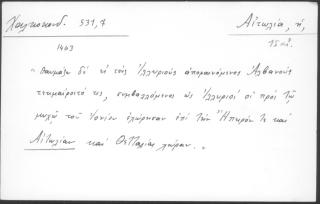 Χαλκοκονδ. 531,7
Αἰτωλία, ἡ,
15 αἰ.
1463
" θαυμάζω δὲ εἰ τοὺς Ἰλλυριοὺς ἀποφαινόμενος Ἀλβανοὺς
τεκμαίροιτό τις, συμβαλλόμενος ὡς Ἰλλυριοὶ οἱ πρὸς τῷ
μυχῷ τοῦ Ἰονίου ἐχώρησαν ἐπὶ τὴν Ἤπειρόν τε καὶ
Αἰτωλίαν καὶ Θετταλίας χώραν. "